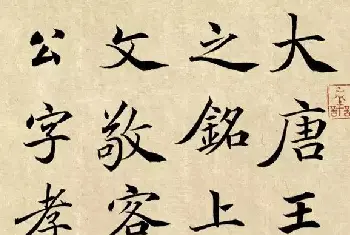 大唐王
之銘上
文敬客
公字孝